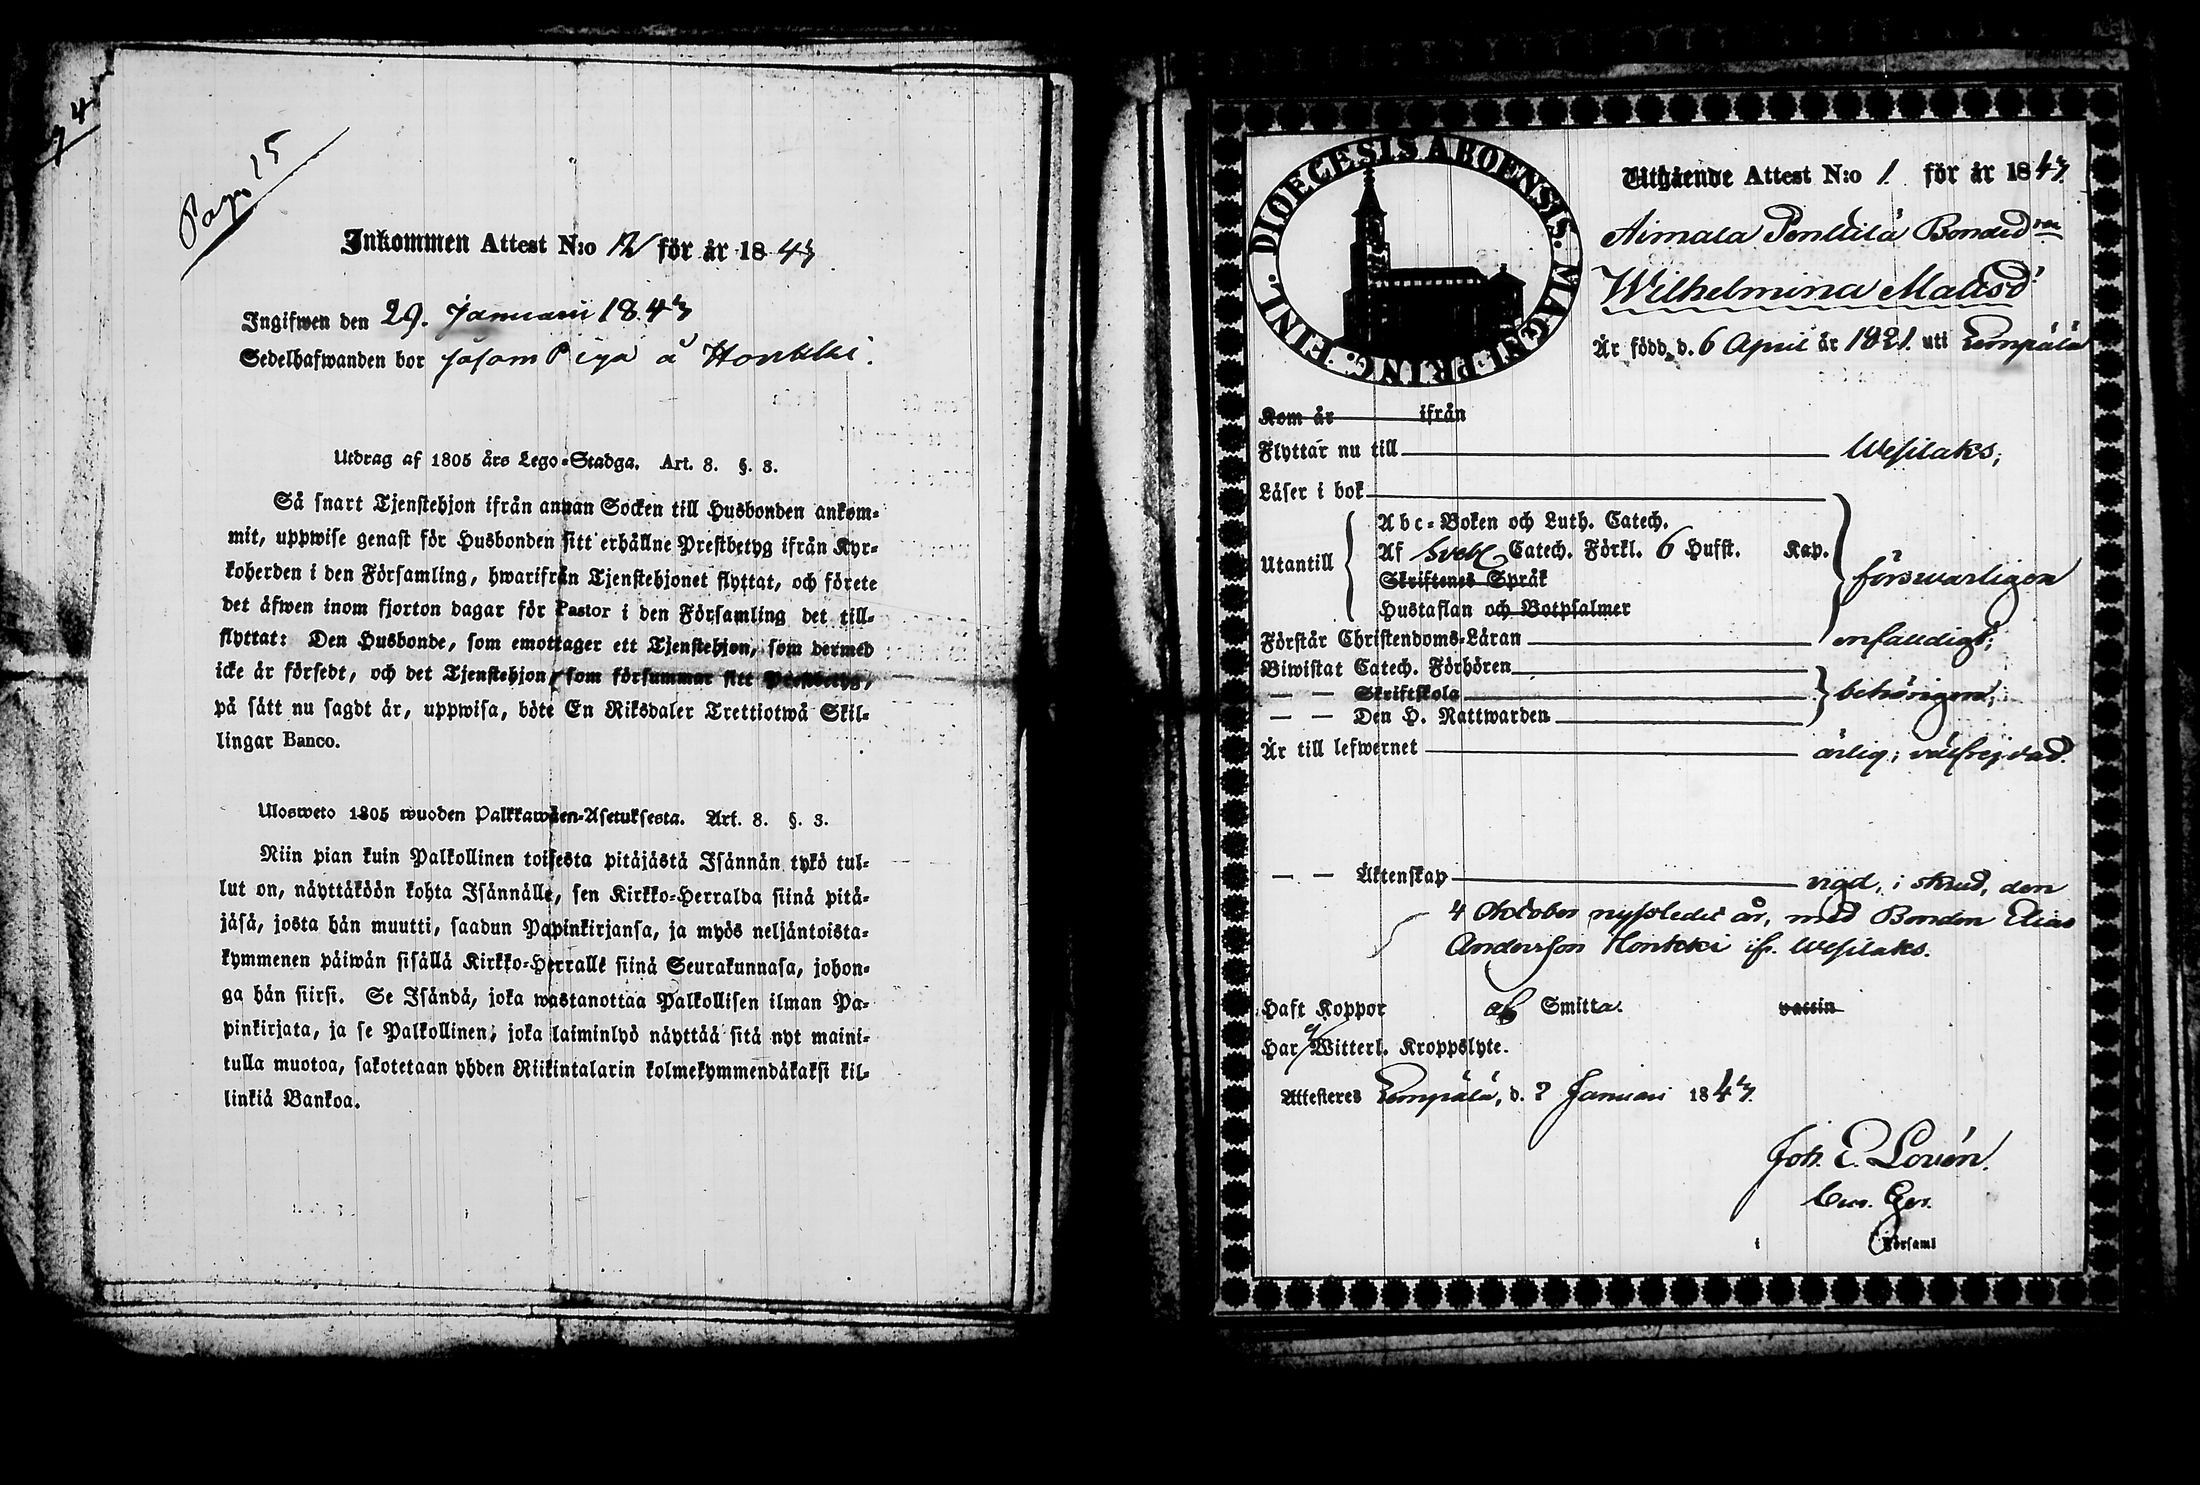 74
Page 15
Inkommen Attest N:o 12 för år 1843
Ingifwen den 29. Januari 1843
Sedelhafwanden bor såsom Piga å Honkki.
Utdrag af 1805 års Lego-Stadga. Art. 8. §. 3.
Så snart Tjenstehjon ifrån annan Socken till Husbonden ankom-
mit, uppwise genast för Husbonden sitt erhållne Prestbetyg ifrån Kyr-
koherden i den Församling, hwarifrån Tjenstehjonet flyttat, och förete
det äfwen inom fjorton dagar för Pastor i den Församling det till-
flyttat: Den Husbonde, som emottager ett Tjenstehjon, som dermed
icke är försedt, och det Tjenstehjon, som försummar sitt Prestbetyg,
på sätt nu sagdt är, uppwisa, böte En Riksdaler Trettiotwå Skil-
lingar Banco.
Ulosweto 1805 wuoden Palkkawäen-Asetuksesta. Art. 8. §. 3.
Niin pian kuin Palkollinen toisesta pitäjästä Isännän tykö tul-
lut on, näyttäköön kohta Isännälle, sen Kirkko-Herralda siinä pitä-
jäsä, josta hän muutti, saadun Papinkirjansa, ja myös neljäntoista-
kymmenen päiwän sisällä Kirkko-Herralle siinä Seurakunnasa, johon-
ga hän siirsi. Se Isändä, joka wastanottaa Palkollisen ilman Pa-
pinkirjata, ja se Palkollinen, joka laiminlyö näyttää sitä nyt maini-
tulla muotoa, sakotetaan yhden Riikintalarin kolmekymmendäkaksi kil-
linkiä Bankoa.
DIOECESIS ABOENSIS. MAGNI PRINC. FINL.
Utgående Attest N:o 1. för år 1843.
Aimala Penttilä Bonded:n
Wilhelmina Matsd:r
Är född d. 6 April år 1821. uti Lempälä
Kom år ifrån
Flyttar nu till Wesilaks;
Läser i bok
Utantill
Abc-Boken och Luth. Catech.
Af Sveb. Catech. Förkl. 6 Hufst. Kap.
Skriftenes Språk
Hustaflan och Botpsalmer
försvarligen
Förstår Christendoms-Läran enfaldigt;
Biwistat Catech. Förhören
— — Skriftskola behörigen;
— — Den H. Nattwarden
Är till lefwernet ärlig; välfrejdad.
— — Äktenskap vigd, i skrud, den
4 Oktober nyssledet år, med Bonden Elias
Andersson Honkki ifr. Wesilaks.
Haft Koppor af Smitta. vaccin
Har ej Witterl. Kroppslyte.
Attesteres Lempälä, d. 2 Januari 1843.
Joh. E. Lovén.
i Församl